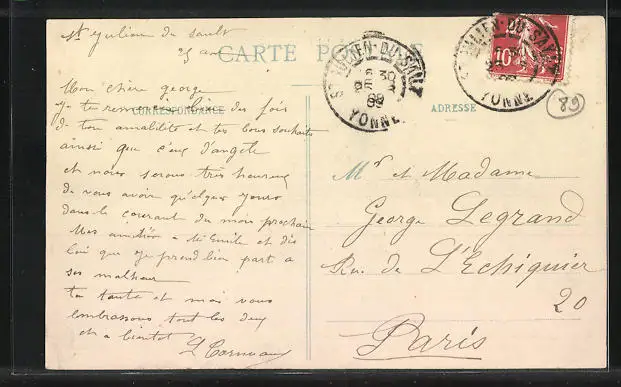 St Julien du Sault
25
CARTE POSTALE
CORRESPONDANCE
ADRESSE
Mon chère george
Je te remercie bien des fois
de ton amabilité et tes bons souhaits
ainsi que ceux d'angele
et nous serons très heureux
de vous avoir quelques jours
dans le courant du mois prochain
Mes amitiés a Mr Emile et dis
lui que je prend bien part a
ses malheur
ta tante et moi vous
embrassons tout les deux
et a bientot
L
ST JULIEN-DU-SAULT
30
08
YONNE
ST JULIEN-DU-SAULT
YONNE
10
82
Mr et Madame
George Legrand
Rue de L'Echiquier
20
Paris